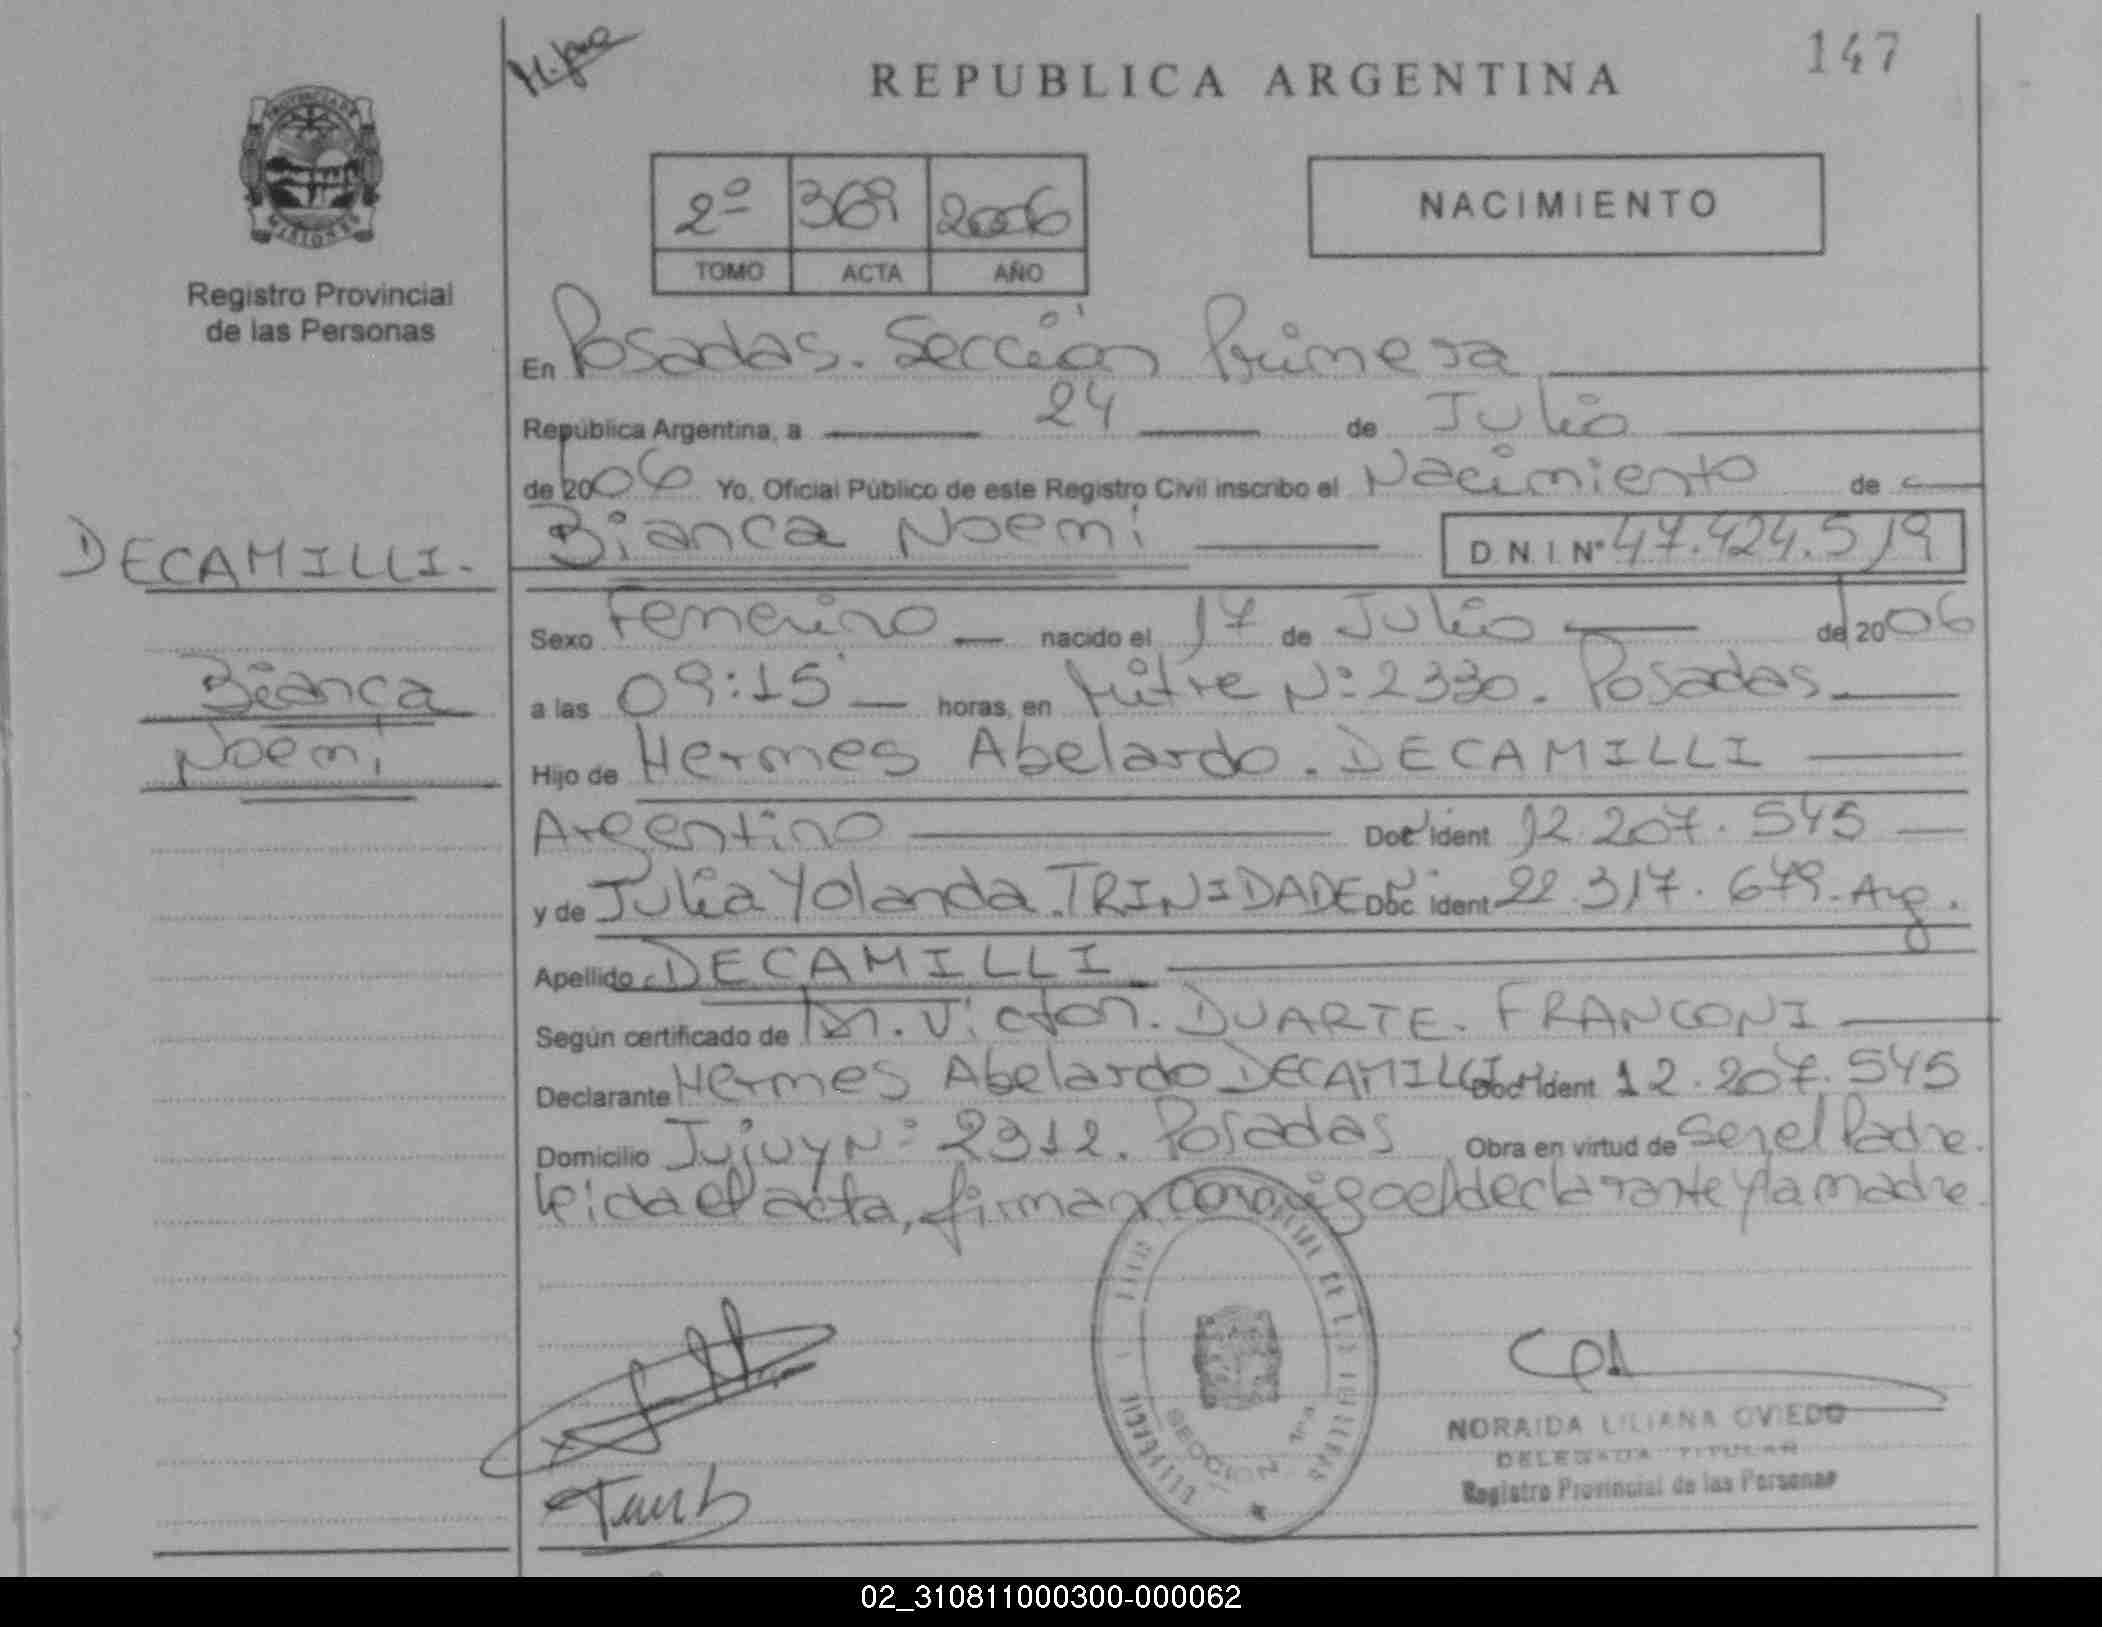 147
REPUBLICA ARGENTINA
PROVINCIA DE
MISIONES
Registro Provincial
de las Personas
2º 369 2006
TOMO ACTA AÑO
NACIMIENTO
En Posadas. Sección Primera
República Argentina, a 24 de Julio
de 2006 Yo, Oficial Público de este Registro Civil inscribo el Nacimiento de
DECAMILLI.
Bianca
Noemi
Bianca Noemi D.N.I. Nº 47.424.519
Sexo Femenino nacido el 17 de Julio de 2006
a las 09:15 horas, en Mitre Nº 2330. Posadas
Hijo de Hermes Abelardo. DECAMILLI
Argentino Doc Ident 12.207.545
y de Julia Yolanda. TRINIDADE Doc Ident 22.317.679. Arg.
Apellido DECAMILLI
Según certificado de Dr. Victor. DUARTE. FRANCONI
Declarante Hermes Abelardo DECAMILLI Doc Ident 12.207.545
Domicilio Jujuy Nº 2312. Posadas Obra en virtud de ser el Padre.
leida el acta, firman conmigo el declarante y la madre.
SECCION 1ra
NORAIDA LILIANA OVIEDO
DELEGADA TITULAR
Registro Provincial de las Personas
02_310811000300-000062